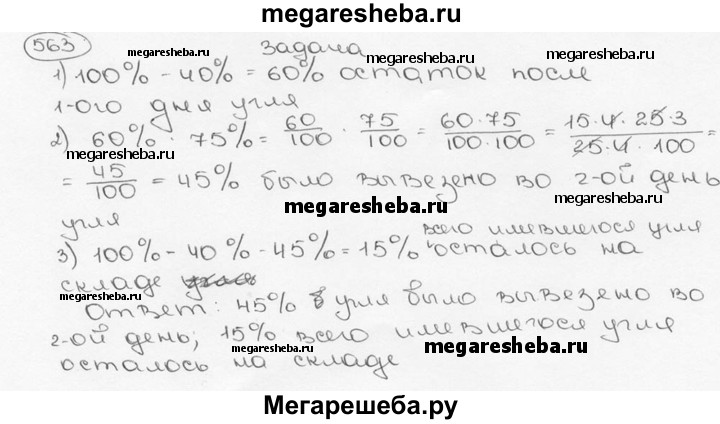 megaresheba.ru
563 megaresheba.ru Задача megaresheba.ru
1) 100% - 40% = 60% остаток после
1-ого дня угля
2) 60% · 75% = 60/100 · 75/100 = 60·75/100·100 = 15·4·25·3/25·4·100 =
megaresheba.ru
= 45/100 = 45% было вывезено во 2-ой день
угля megaresheba.ru
3) 100% - 40% - 45% = 15% всего имевшегося угля осталось на
складе
megaresheba.ru
Ответ: 45% угля было вывезено во
2-ой день; 15% всего имевшегося угля
megaresheba.ru megaresheba.ru
осталось на складе
Мегарешеба.ру